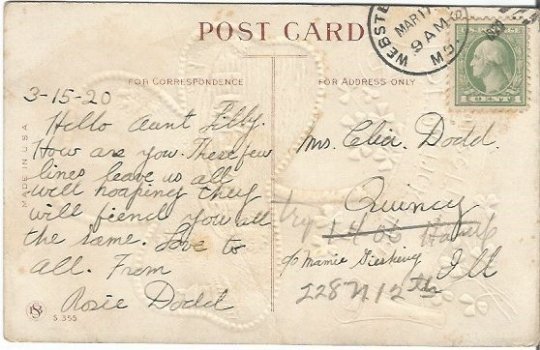 POST CARD
FOR CORRESPONDENCE
FOR ADDRESS ONLY
WEBSTE
MAR 17
9 AM
MO.
3-15-20
Hello Aunt Lilly.
How are you. These few
lines leave us all
well hoaping they
will fiend you all
the same. Love to
all. From
Rosie Dodd
MADE IN U.S.A.
S. 355
Mrs. Dodd.
Quincy
try
Ill
c/o Mamie
228 N 12th